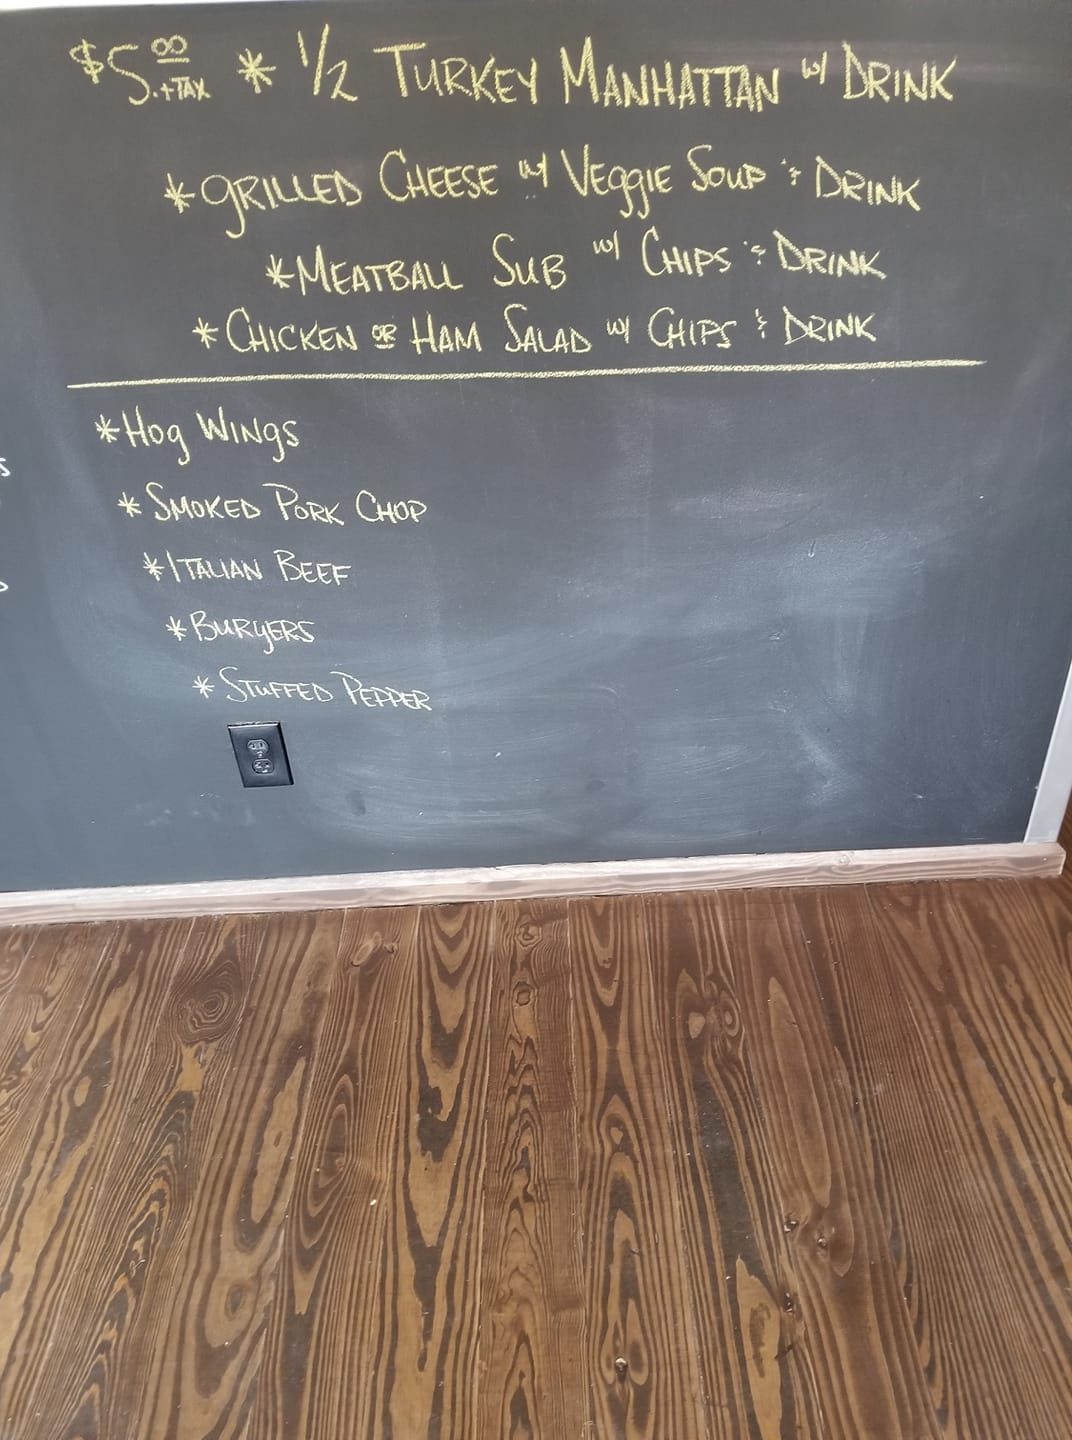 $5.00 +TAX * 1/2 TURKEY MANHATTAN w/ DRINK
* GRILLED CHEESE w/ VEggIE SOUP & DRINK
* MEATBALL SUB w/ CHIPS & DRINK
* CHICKEN OR HAM SALAD w/ CHIPS & DRINK
* Hog WINgS
* SMOKED PORK CHOP
* ITALIAN BEEF
* BURgERS
* STUFFED PEPPER